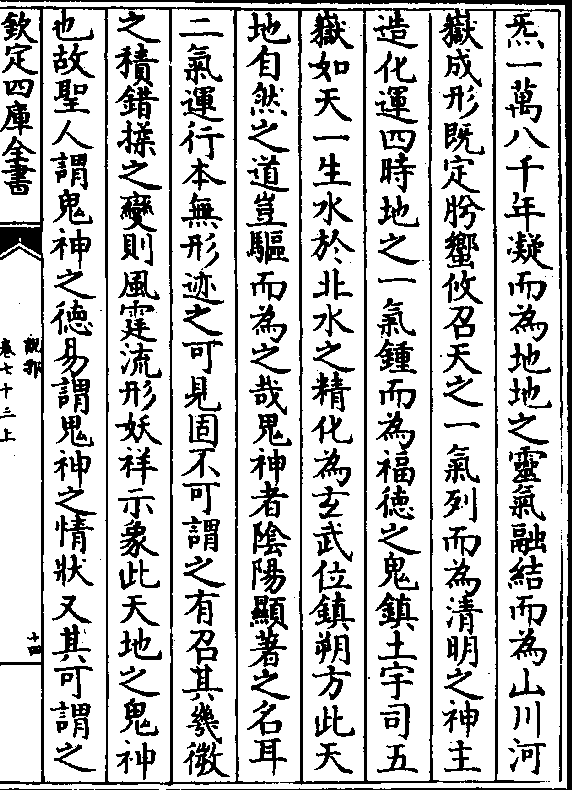 炁一萬八千年凝而為地地之靈氣融結而為山川河
嶽成形既定肸蠁攸召天之一氣列而為清明之神主
造化運四時地之一氣鍾而為福徳之鬼鎮土宇司五
嶽如天一生水於北水之精化為𤣥武位鎮朔方此天
地自然之道豈驅而為之哉鬼神者隂陽顯著之名耳
二氣運行本無形迹之可見固不可謂之有召其幾微
之積錯揉之變則風霆流形妖祥示象此天地之鬼神
也故聖人謂鬼神之徳易謂鬼神之情狀又其可謂之
欽定四庫全書
說郛
卷七十三上
十四